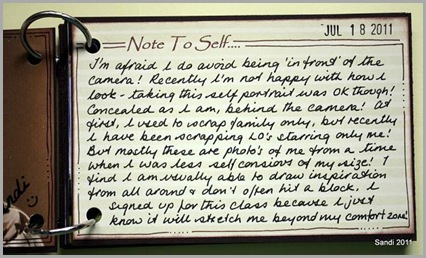 Note To Self....
JUL 18 2011
I'm afraid I do avoid being 'in front' of the
camera! Recently I'm not happy with how I
look - taking this self portrait was OK though!
Concealed as I am, behind the camera! At
first, I used to scrap family only, but recently
I have been scrapping LO's starring only me!
But mostly these are photo's of me from a time
when I was less self consious of my size! I
find I am usually able to draw inspiration
from all around & don't often hit a block. I
signed up for this class because I just
know it will stretch me beyond my comfort zone!
Sandi 2011